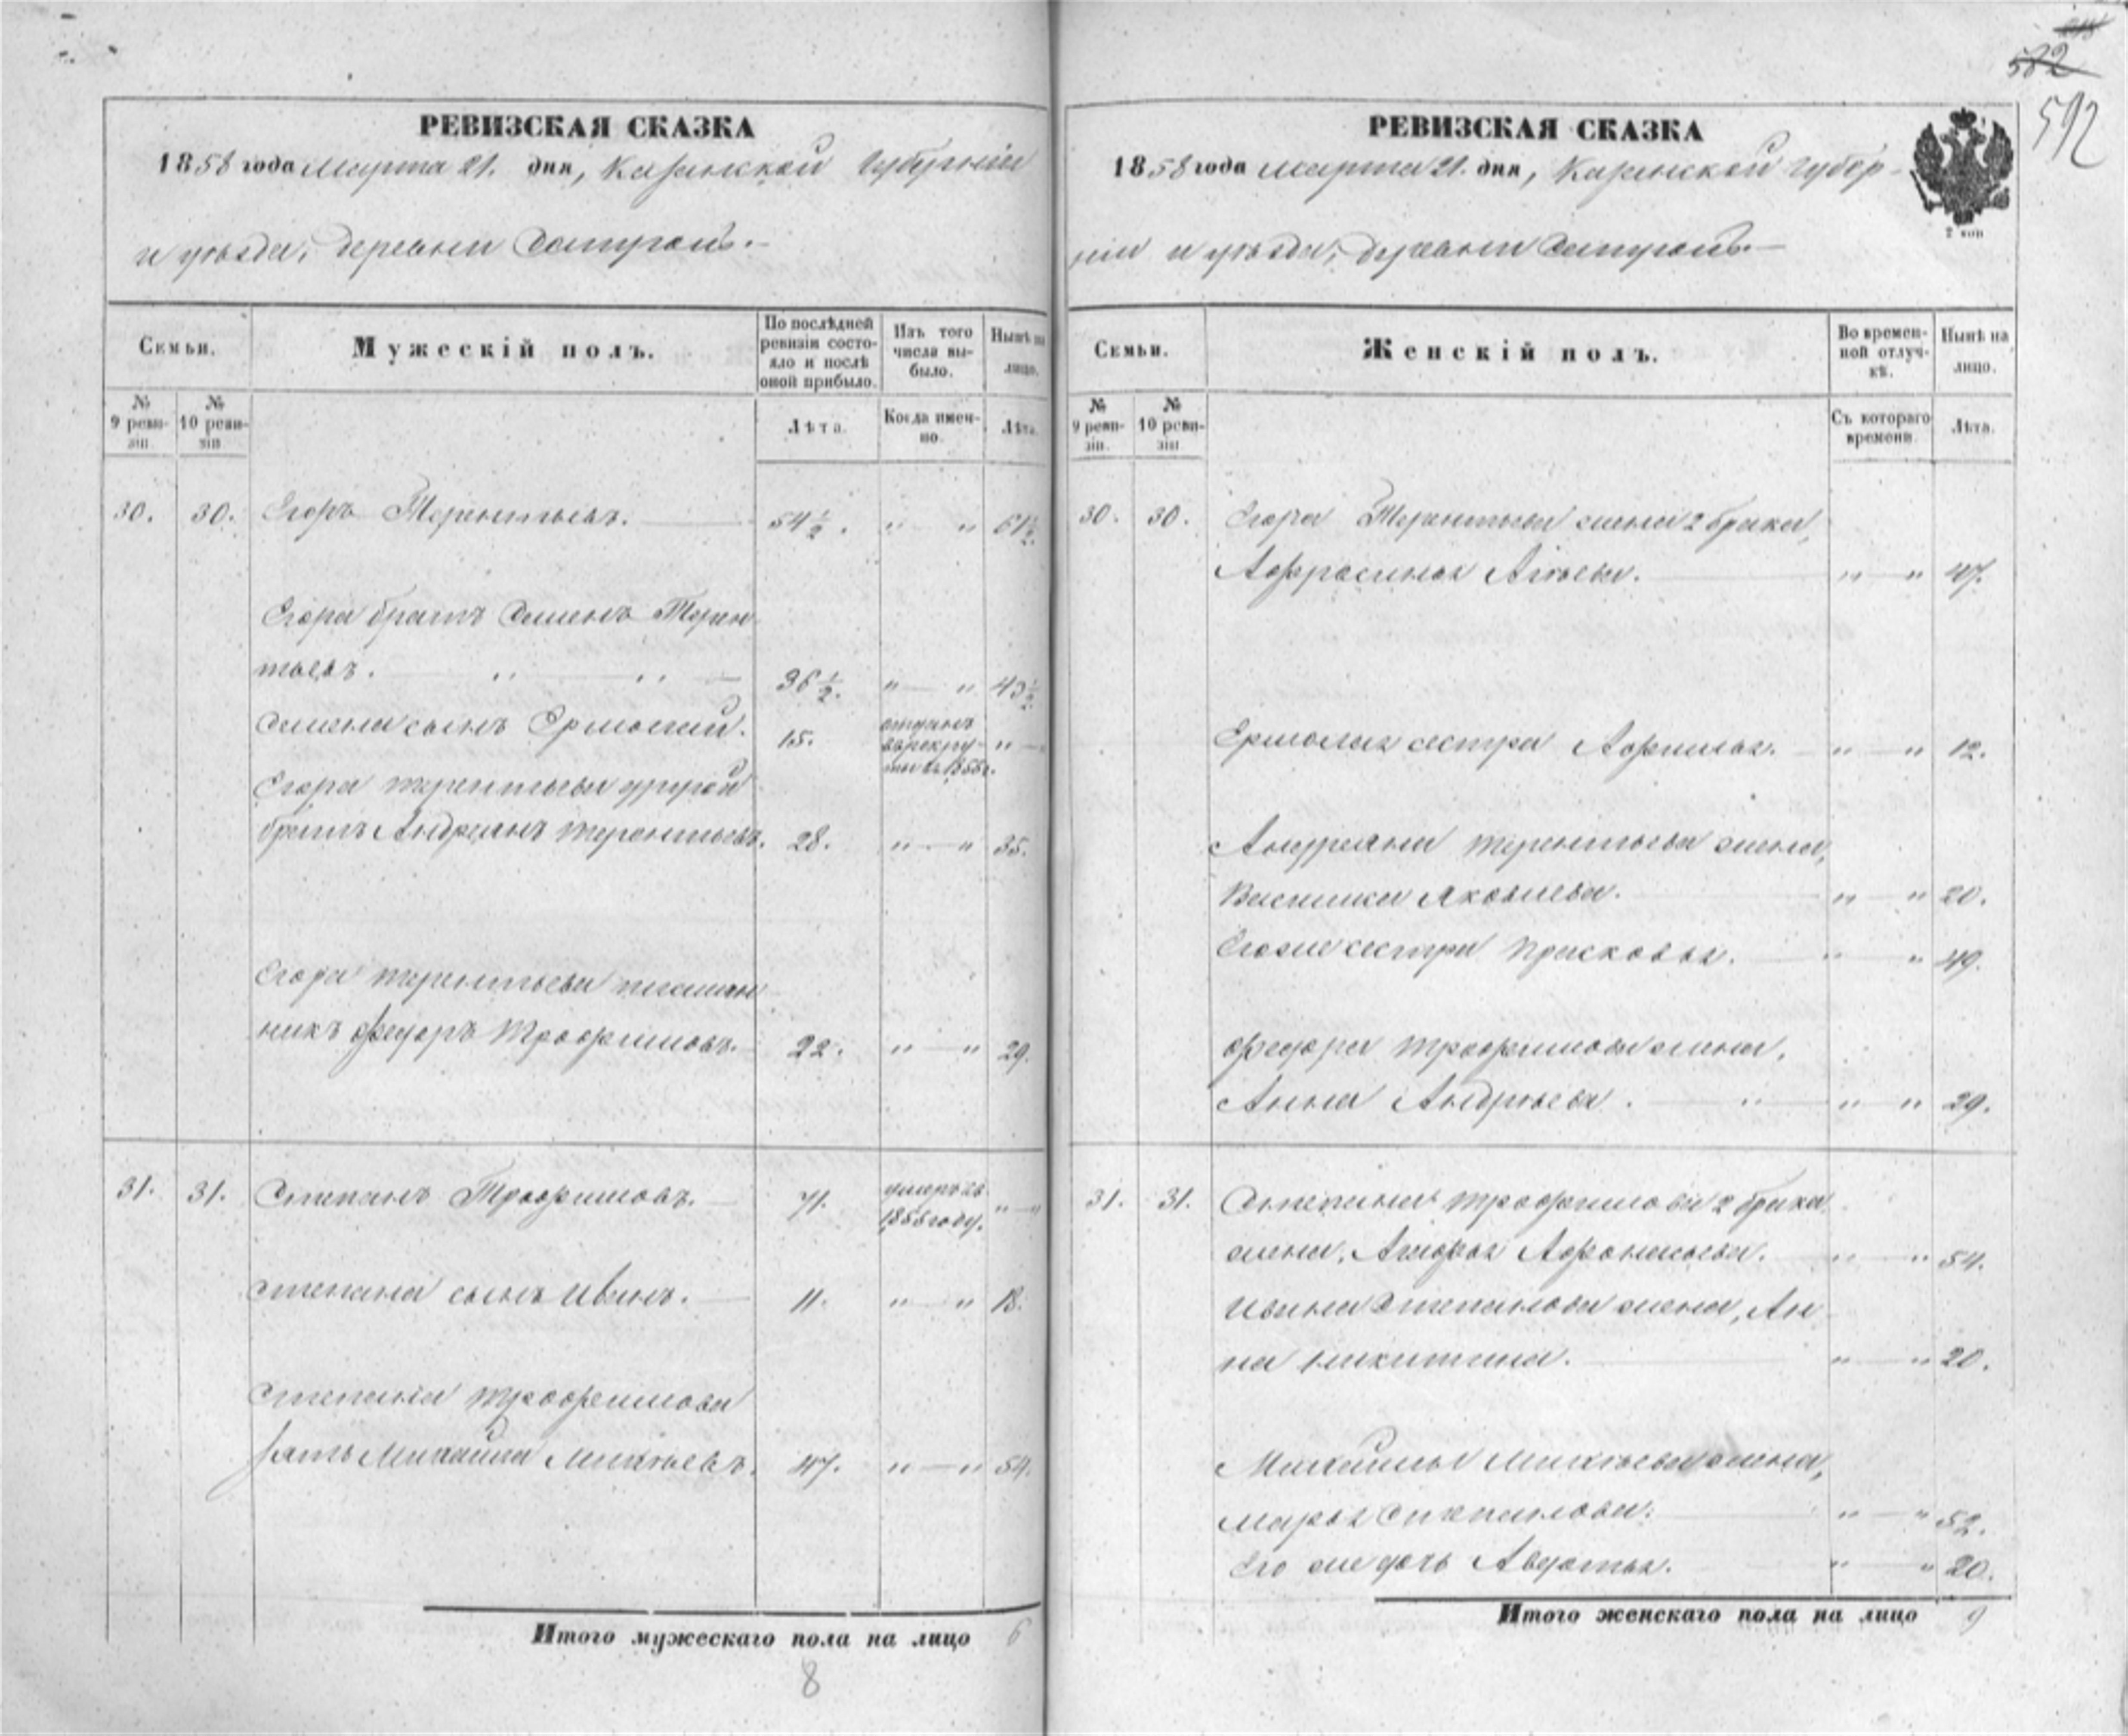 592
РЕВИЗСКАЯ СКАЗКА
1858 года Марта 21. дня, Казанской Губерніи
и уѣзда, деревни
Семьи.
Мужескій полъ.
По послѣдней ревизіи состояло и послѣ оной прибыло.
Изъ того числа выбыло.
Нынѣ на лицо.
№ 9 ревизіи.
№ 10 ревизіи.
Лѣта.
Когда именно.
Лѣта.
30. 30. Егоръ Терентьевъ. 54 1/2. " " 61 1/2.
Егора братъ Семенъ Терен
тьевъ. 36 1/2. " " 43 1/2
Семена сынъ Ермолай. 15. отданъ в рекруты въ 1855 г. "
Егора Терентьева другой
братъ Андреянъ Терентьевъ. 28. " " 35.
Егора Терентьева племян
никъ Федоръ Трофимовъ. 22. " " 29.
31. 31. Степанъ Трофимовъ. 71. умеръ въ 1855 году. " "
Степана сынъ Иванъ. 11. " " 18.
Степана Трофимова
зять Михайла Михѣевъ. 47. " " 54.
Итого мужескаго пола на лицо 6
8
РЕВИЗСКАЯ СКАЗКА
1858 года марта 21. дня, Казанской Губер-
ніи и уѣзда, деревни
2 коп
Семьи.
Женскій полъ.
Во временной отлучкѣ.
Нынѣ на лицо.
№ 9 ревизіи.
№ 10 ревизіи.
Съ котораго времени.
Лѣта.
30. 30. Егора Терентьева жена 2 брака,
Афросинья " " 47.
Ермолая сестра Афимья. " " 12.
Андреяна Терентьева жена,
Василиса Яковлева. " " 20.
Его же сестра Прасковья. " " 49.
Федора Трофимова жена,
Анна Андрѣева. " " 29.
31. 31. Степана Трофимова 2 брака
жена, Афонасьева. " " 54.
Ивана Степанова жена, Ан
на Никитина. " " 20.
Михайлы Михѣева жена,
Марья Степанова. " " 52.
Его же дочь Авдотья. " " 20.
Итого женскаго пола на лицо 9